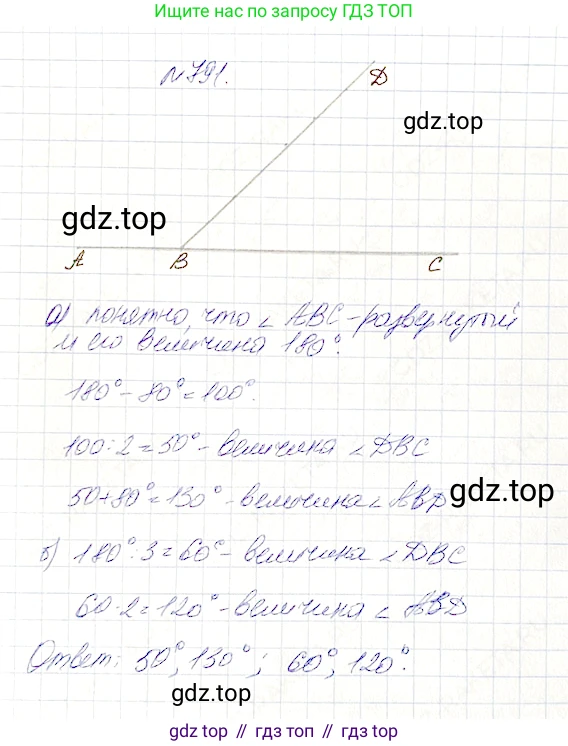 Ищите решение по запросу ГДЗ ТОП
№791.
D
gdz.top
gdz.top
A B C
а) понятно, что ∠ ABC - развернутый
и его величина 180°.
180° - 80° = 100°.
100 : 2 = 50° - величина ∠ DBC
50 + 80° = 130° - величина ∠ ABD
gdz.top
б) 180° : 3 = 60° - величина ∠ DBC
60 · 2 = 120° - величина ∠ ABD
Ответ: 50°, 130°; 60°, 120°.
gdz.top
gdz.top // гдз.топ // gdz.top // гдз.топ